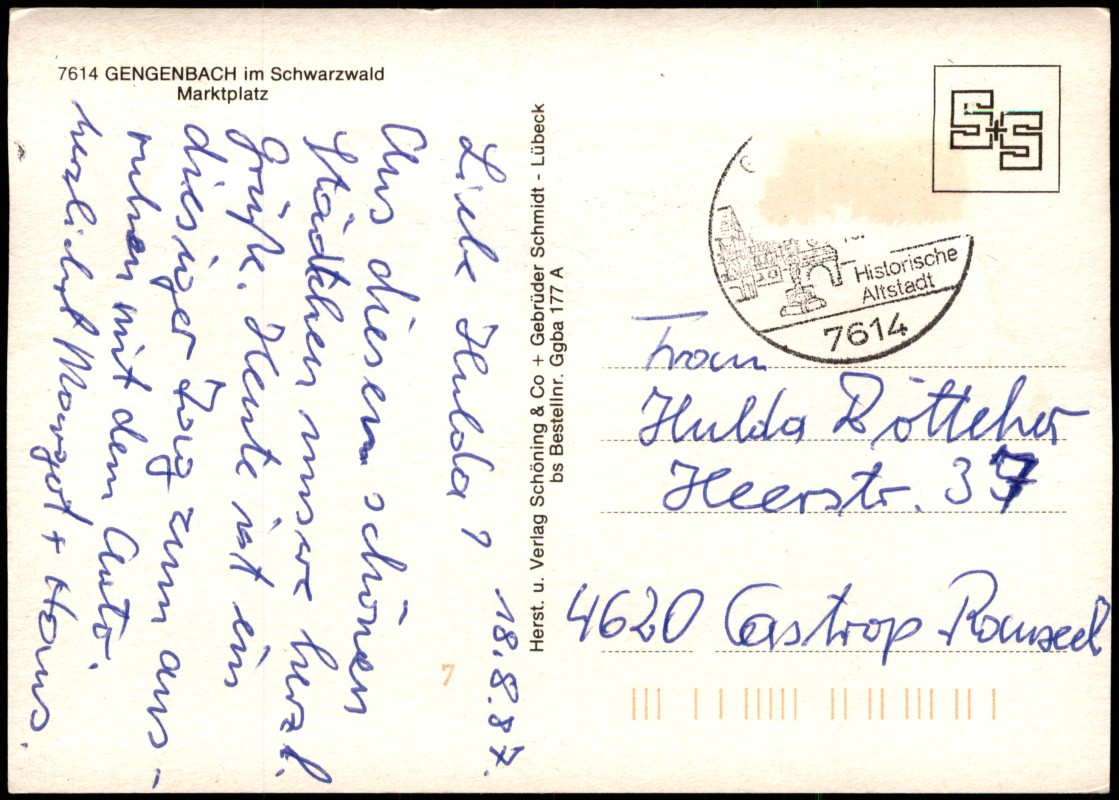 7614 GENGENBACH im Schwarzwald
Marktplatz
18.8.87.
Liebe Hulda!
Aus diesem schönen
Städtchen unsere herzl.
Grüße. Heute ist ein
diesiger Tag zum aus-
ruhen mit dem Auto.
herzlichst Margot + Hans.
Herst. u. Verlag Schöning & Co + Gebrüder Schmidt - Lübeck
bs Bestellnr. Ggba 177 A
S+S
Historische
Altstadt
7614
Frau
Hulda Böttcher
Heerstr. 37
4620 Castrop Rauxel
7